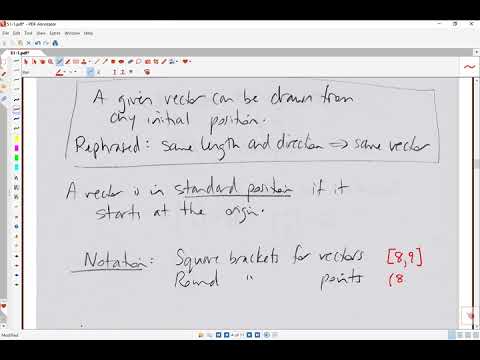 S1-1.pdf* - PDF Annotator
File Edit View
S1-1.pdf*
A given vector can be drawn from
any initial position.
Rephrased: same length and direction ⇒ same vector
A vector is in standard position if it
starts at the origin.
Notation: Square brackets for vectors [8,9]
Round " points (8
Modified